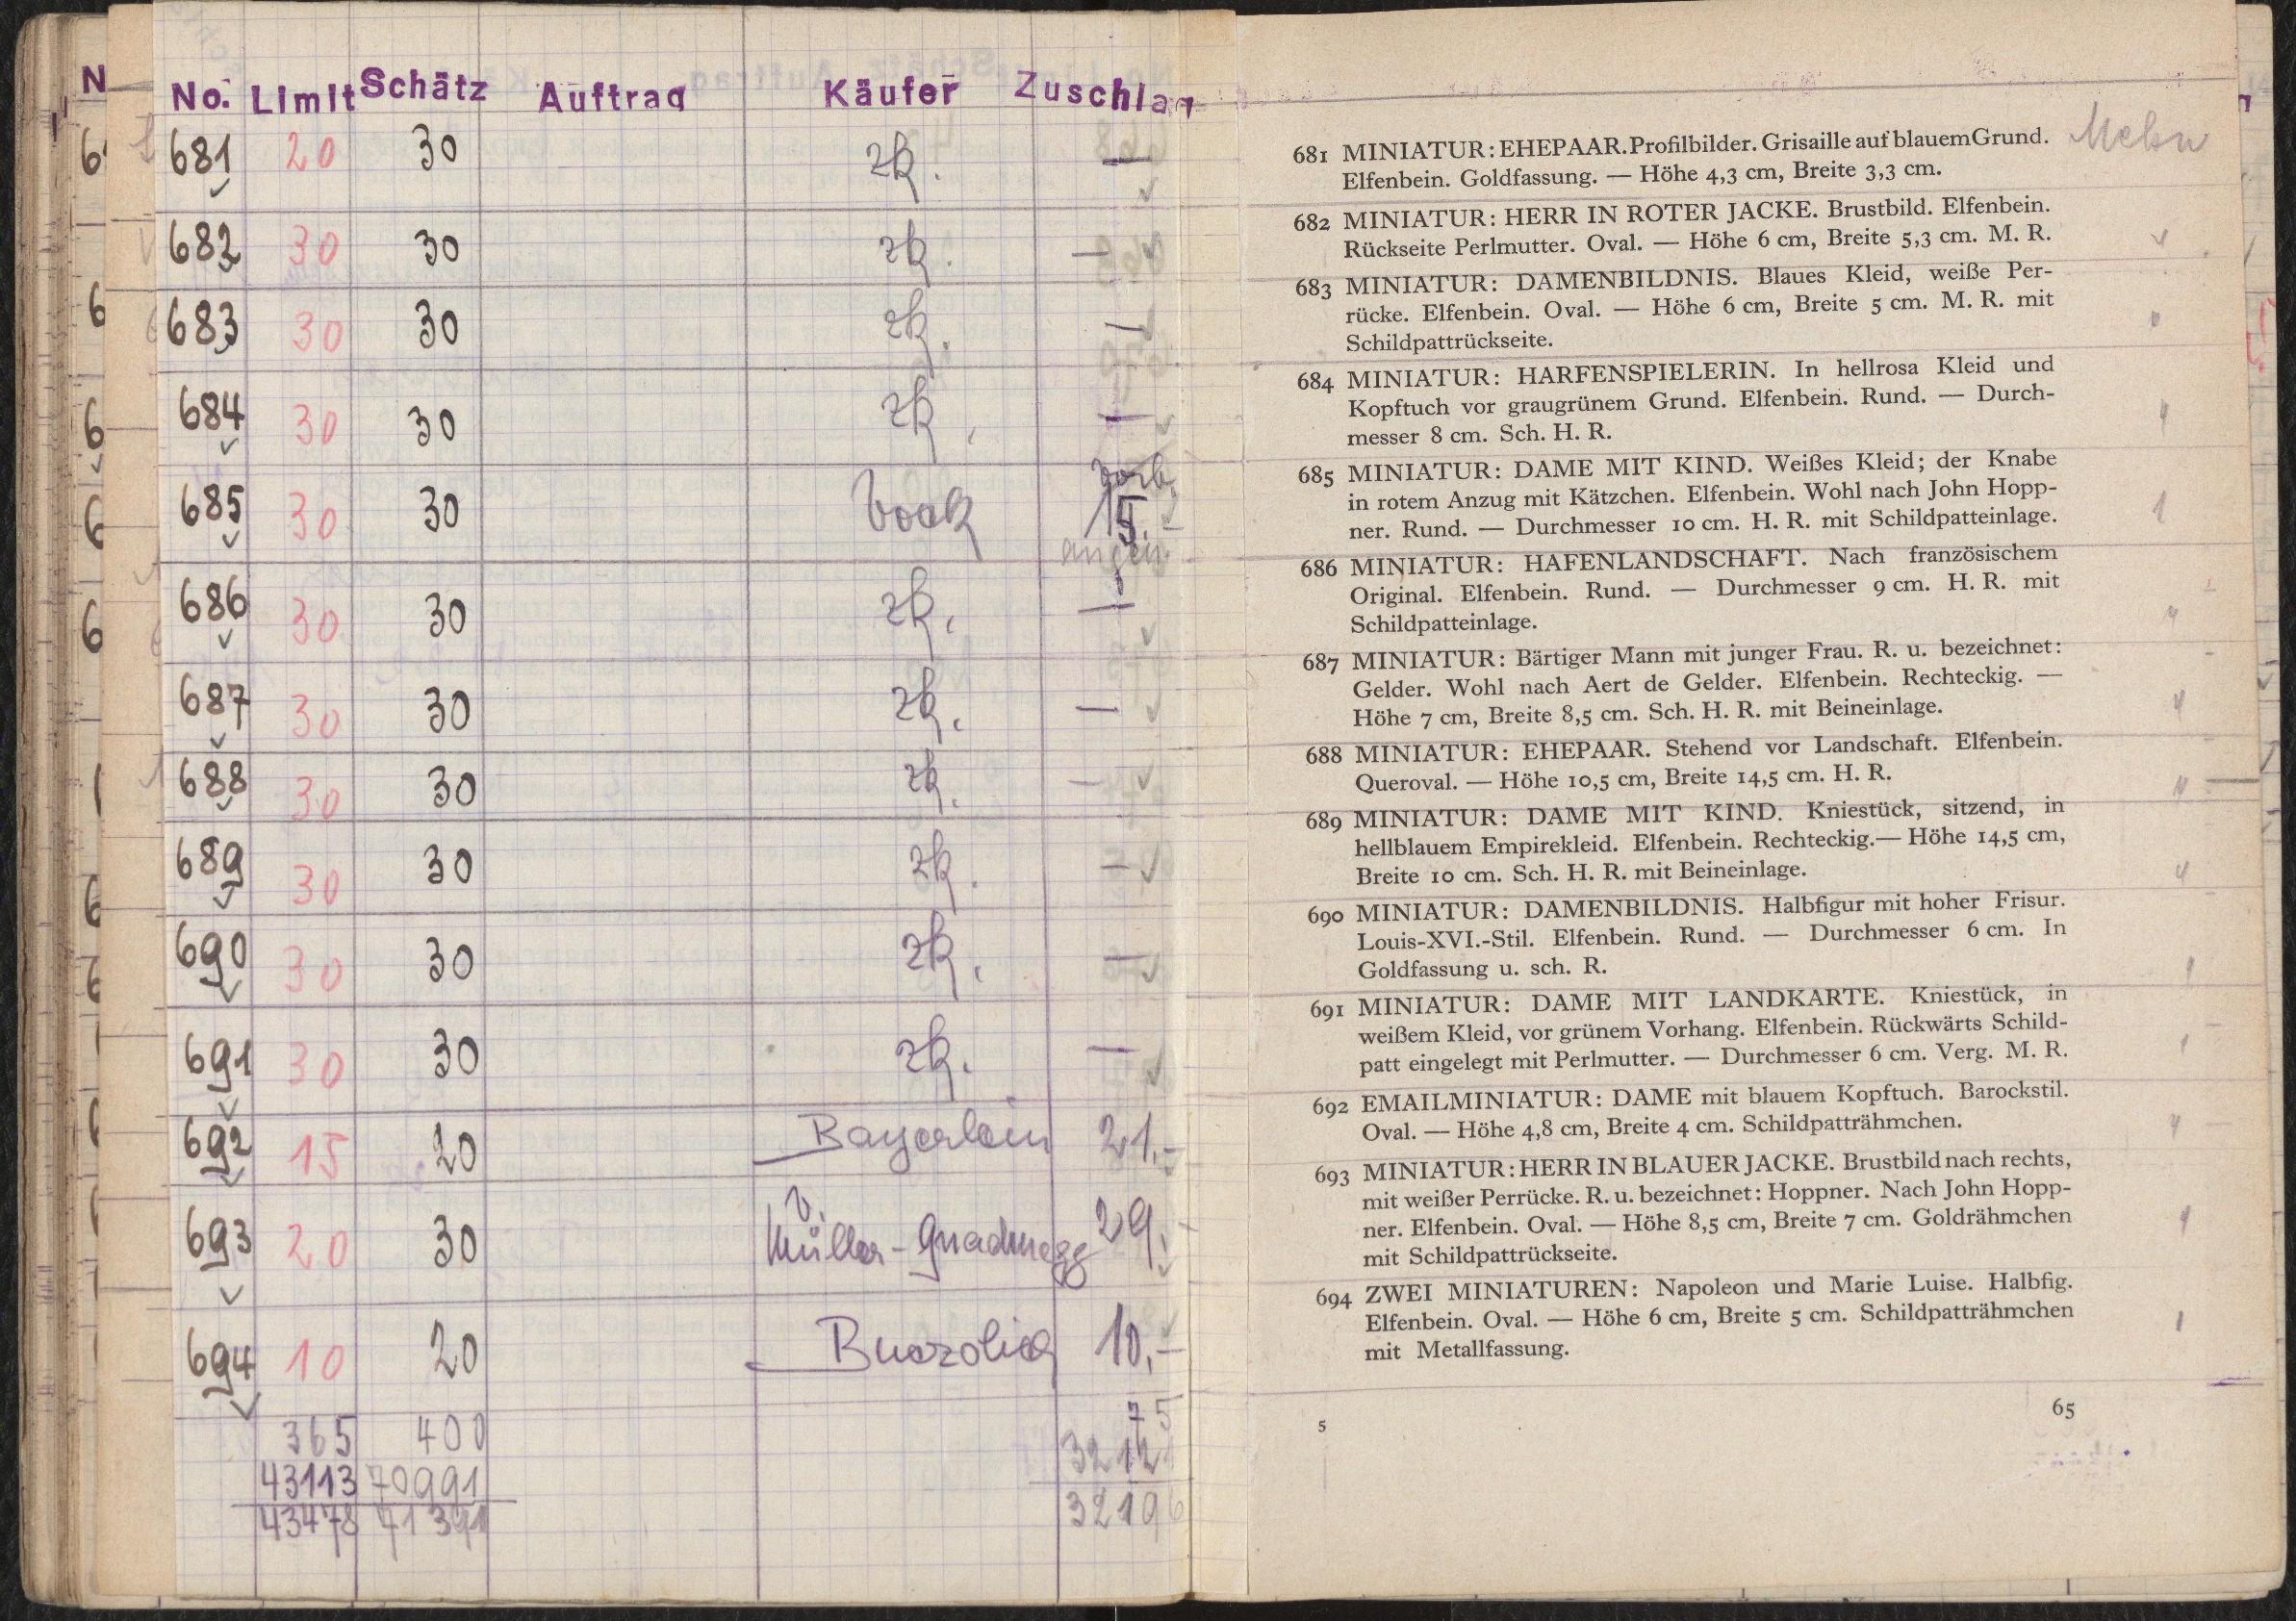 No. Limit Schätz Auftrag Käufer Zuschlag
681 20 30 zk. —
682 30 30 zk. —
683 30 30 zk. —
684 30 30 zk. —
685 30 30 Vook vorb. 15.–
angen.
686 30 30 zk. —
687 30 30 zk. —
688 30 30 zk. —
689 30 30 zk. —
690 30 30 zk. —
691 30 30 zk. —
692 15 20 Bayerlein 21.–
693 20 30 v. Müller-Gnadenegg 29.–
694 10 20 10.–
365 400 75
43113 70991
43478 71391 32196
681 MINIATUR: EHEPAAR. Profilbilder. Grisaille auf blauem Grund.
Elfenbein. Goldfassung. — Höhe 4,3 cm, Breite 3,3 cm.
682 MINIATUR: HERR IN ROTER JACKE. Brustbild. Elfenbein.
Rückseite Perlmutter. Oval. — Höhe 6 cm, Breite 5,3 cm. M. R.
683 MINIATUR: DAMENBILDNIS. Blaues Kleid, weiße Per-
rücke. Elfenbein. Oval. — Höhe 6 cm, Breite 5 cm. M. R. mit
Schildpattrückseite.
684 MINIATUR: HARFENSPIELERIN. In hellrosa Kleid und
Kopftuch vor graugrünem Grund. Elfenbein. Rund. — Durch-
messer 8 cm. Sch. H. R.
685 MINIATUR: DAME MIT KIND. Weißes Kleid; der Knabe
in rotem Anzug mit Kätzchen. Elfenbein. Wohl nach John Hopp-
ner. Rund. — Durchmesser 10 cm. H. R. mit Schildpatteinlage.
686 MINIATUR: HAFENLANDSCHAFT. Nach französischem
Original. Elfenbein. Rund. — Durchmesser 9 cm. H. R. mit
Schildpatteinlage.
687 MINIATUR: Bärtiger Mann mit junger Frau. R. u. bezeichnet:
Gelder. Wohl nach Aert de Gelder. Elfenbein. Rechteckig. —
Höhe 7 cm, Breite 8,5 cm. Sch. H. R. mit Beineinlage.
688 MINIATUR: EHEPAAR. Stehend vor Landschaft. Elfenbein.
Queroval. — Höhe 10,5 cm, Breite 14,5 cm. H. R.
689 MINIATUR: DAME MIT KIND. Kniestück, sitzend, in
hellblauem Empirekleid. Elfenbein. Rechteckig.— Höhe 14,5 cm,
Breite 10 cm. Sch. H. R. mit Beineinlage.
690 MINIATUR: DAMENBILDNIS. Halbfigur mit hoher Frisur.
Louis-XVI.-Stil. Elfenbein. Rund. — Durchmesser 6 cm. In
Goldfassung u. sch. R.
691 MINIATUR: DAME MIT LANDKARTE. Kniestück, in
weißem Kleid, vor grünem Vorhang. Elfenbein. Rückwärts Schild-
patt eingelegt mit Perlmutter. — Durchmesser 6 cm. Verg. M. R.
692 EMAILMINIATUR: DAME mit blauem Kopftuch. Barockstil.
Oval. — Höhe 4,8 cm, Breite 4 cm. Schildpatträhmchen.
693 MINIATUR: HERR IN BLAUER JACKE. Brustbild nach rechts,
mit weißer Perrücke. R. u. bezeichnet: Hoppner. Nach John Hopp-
ner. Elfenbein. Oval. — Höhe 8,5 cm, Breite 7 cm. Goldrähmchen
mit Schildpattrückseite.
694 ZWEI MINIATUREN: Napoleon und Marie Luise. Halbfig.
Elfenbein. Oval. — Höhe 6 cm, Breite 5 cm. Schildpatträhmchen
mit Metallfassung.
5 65